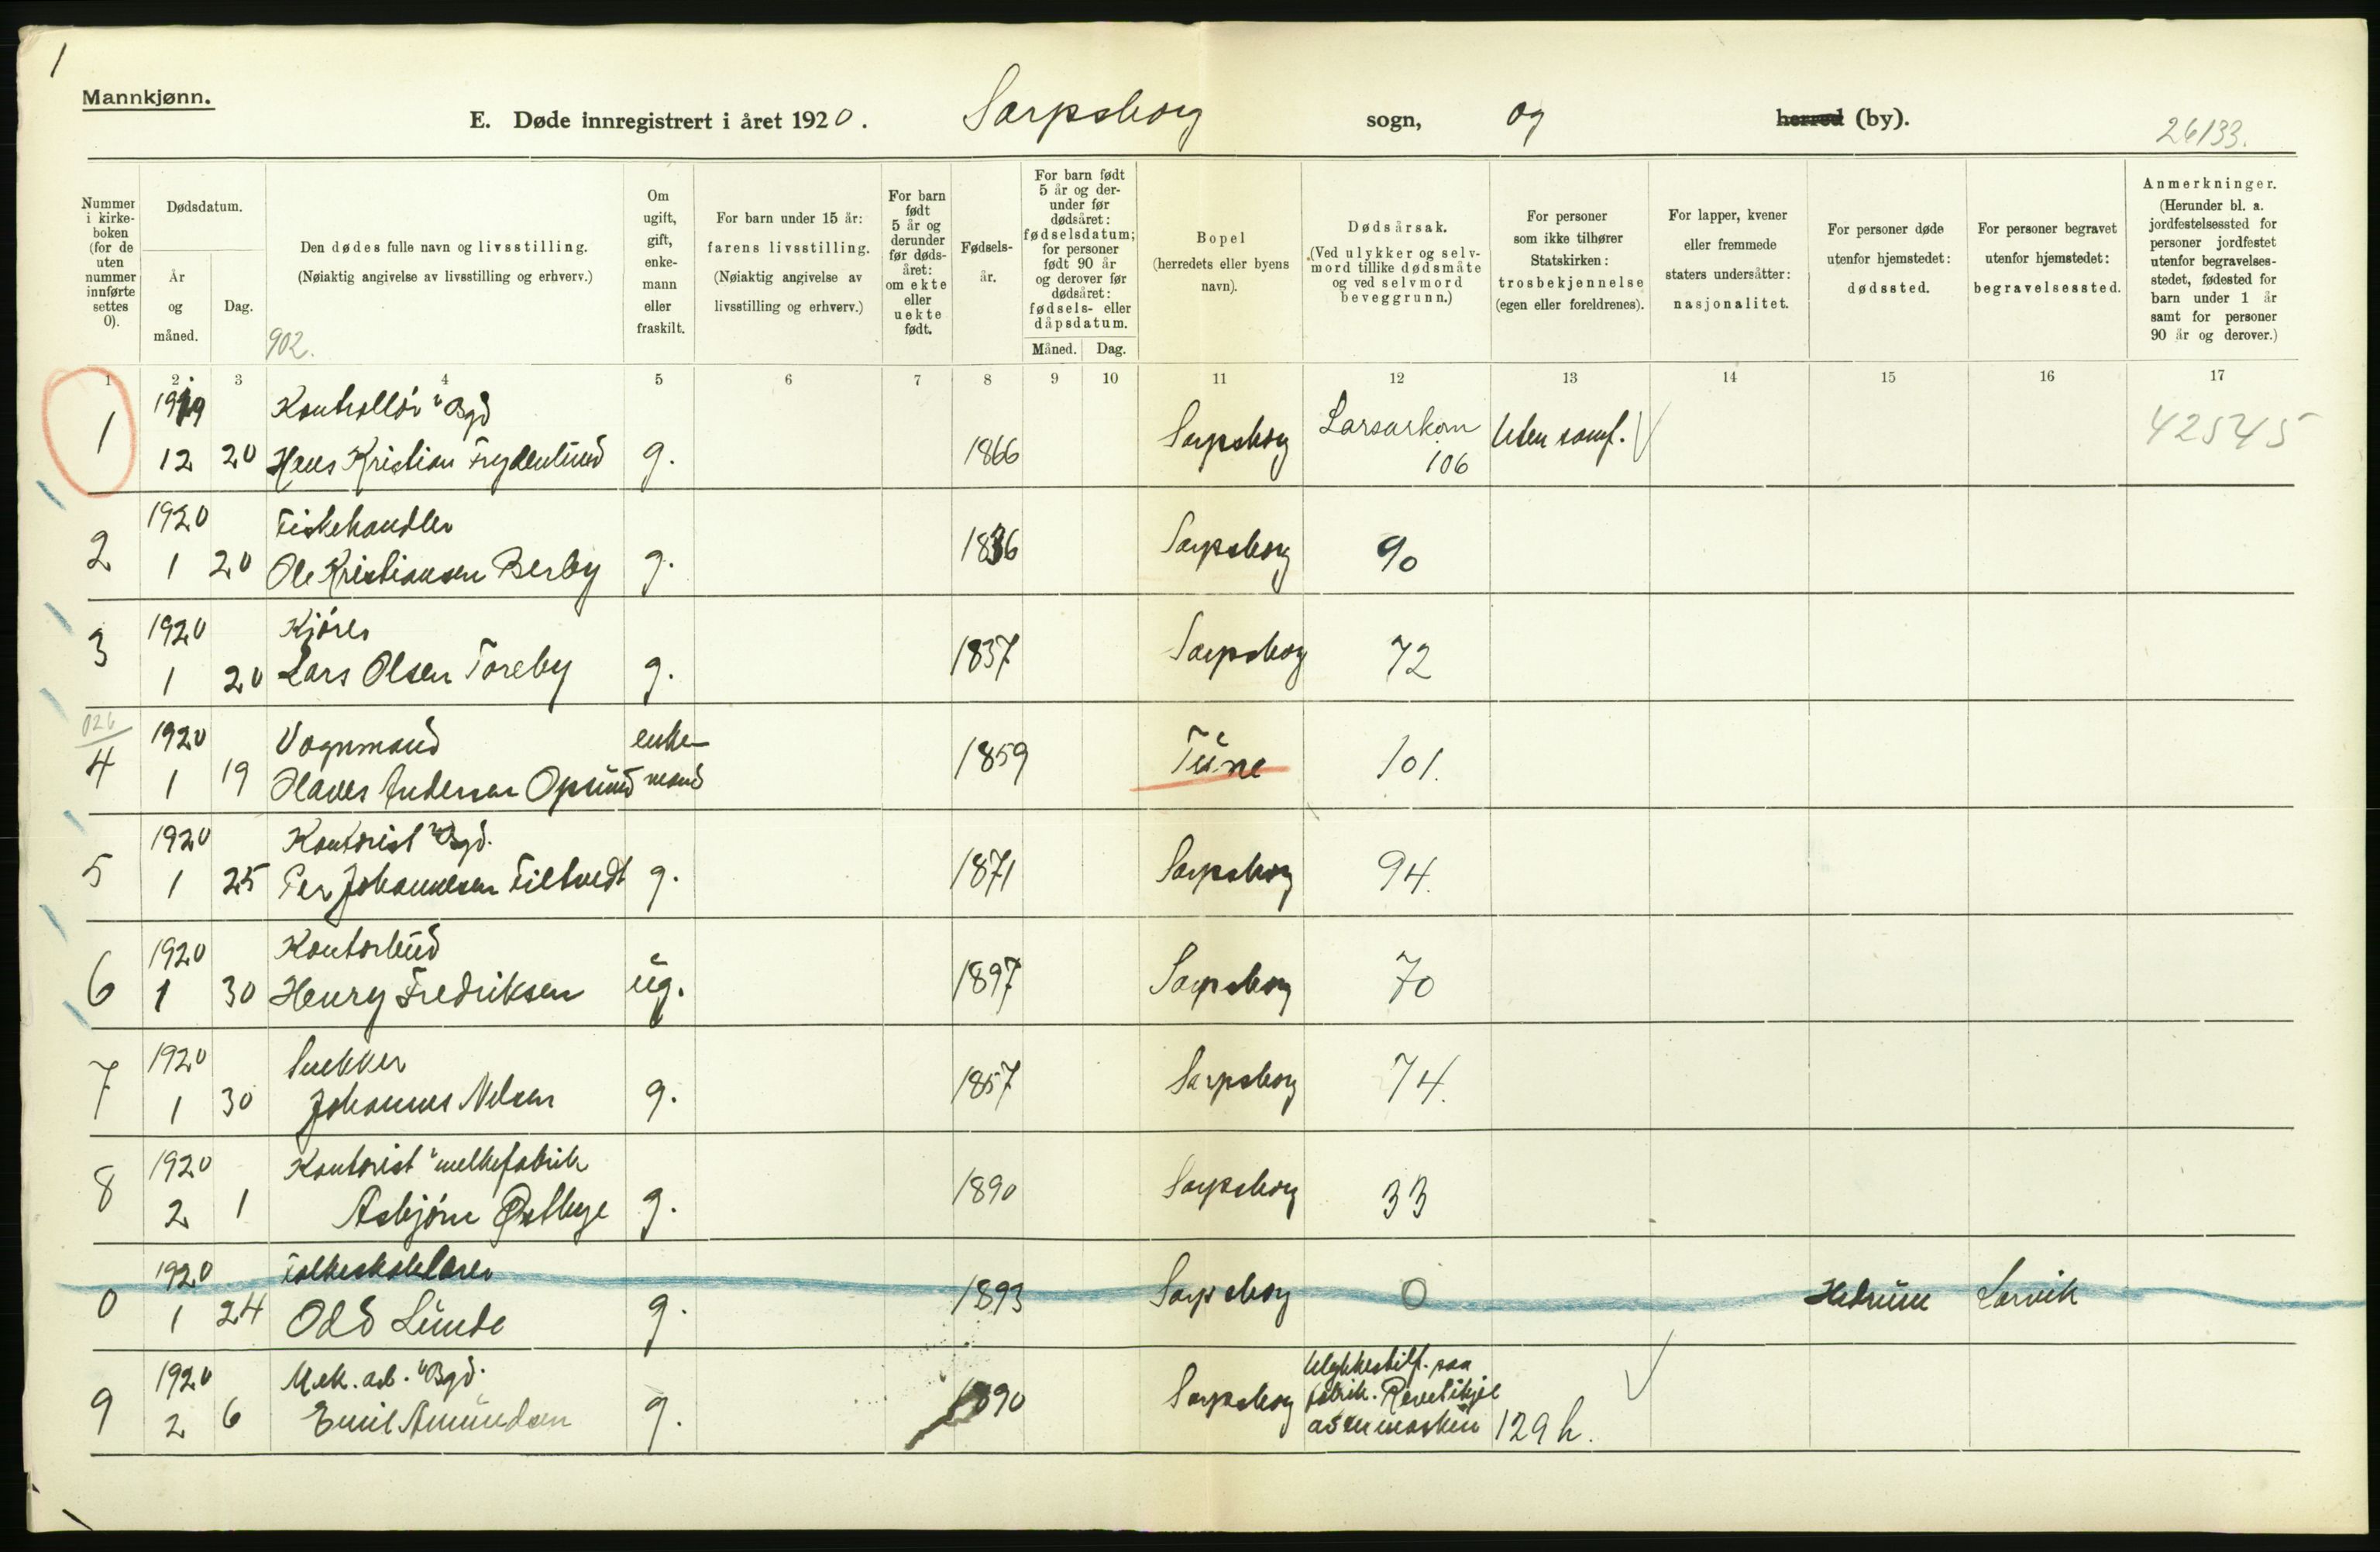 1
Mannkjønn.
E. Døde innregistrert i året 1920. Sarpsborg sogn, og herred (by).
26133.
Nummer i kirke-boken (for de uten nummer innførte settes 0).
Dødsdatum.
År og måned.
Dag.
Den dødes fulle navn og livsstilling.
(Nøiaktig angivelse av livsstilling og erhverv.)
902.
Om ugift, gift, enke-mann eller fraskilt.
For barn under 15 år: farens livsstilling.
(Nøiaktig angivelse av livsstilling og erhverv.)
For barn født 5 år og derunder før døds-året: om ekte eller uekte født.
Fødsels-år.
For barn født 5 år og der-under før dødsåret: fødselsdatum; for personer født 90 år og derover før dødsåret: fødsels- eller dåpsdatum.
Måned. Dag.
Bopel
(herredets eller byens navn).
Dødsårsak.
(Ved ulykker og selv-mord tillike dødsmåte og ved selvmord beveggrunn.)
For personer som ikke tilhører Statskirken: trosbekjennelse (egen eller foreldrenes).
For lapper, kvener eller fremmede staters undersåtter: nasjonalitet.
For personer døde utenfor hjemstedet: dødssted.
For personer begravet utenfor hjemstedet: begravelsessted.
Anmerkninger.
(Herunder bl. a. jordfestelsessted for personer jordfestet utenfor begravelses-stedet, fødested for barn under 1 år samt for personer 90 år og derover.)
1 2 3 4 5 6 7 8 9 10 11 12 13 14 15 16 17
1919 Kontrollør v Bgd
1 12 20 Hans Kristian Frydenlund g. 1866 Sarpsborg Larsarkom 106 Uden samf. 42545
1920 Fiskehandler
2 1 20 Ole Kristiansen Berby g. 1836 Sarpsborg 90
1920 Kjører
3 1 20 Lars Olsen Toreby g. 1837 Sarpsborg 72
026
1920 Vognmand enke-
4 1 19 Andersen Opsund mand 1859 Tune 101.
1920 Kontorist v Bgd.
5 1 25 Per Johannesen Filtvedt g. 1871 Sarpsborg 94.
1920 Kontorbud
6 1 30 Henry Fredriksen ug. 1897 Sarpsborg 70
1920 Snekker
7 1 30 Johannes Nilsen g. 1857 Sarpsborg 74.
1920 Kontorist v melkefabrik
8 2 1 Asbjørn Østbye g. 1890 Sarpsborg 33
1920 Folkeskolelærer
0 1 24 Odd Lunde g. 1893 Sarpsborg 0 Hedrum Larvik
1920 Mek. arb. v Bgd. Ulykkestilf. paa
9 2 6 Emil Amundsen g. 1890 Sarpsborg fabrik. 129 h.